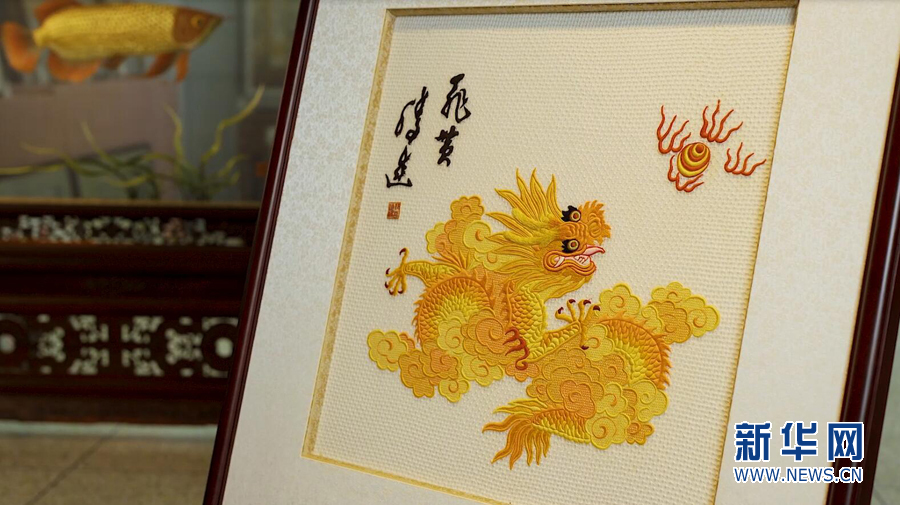 飛黄
騰達
新华网
WWW.NEWS.CN